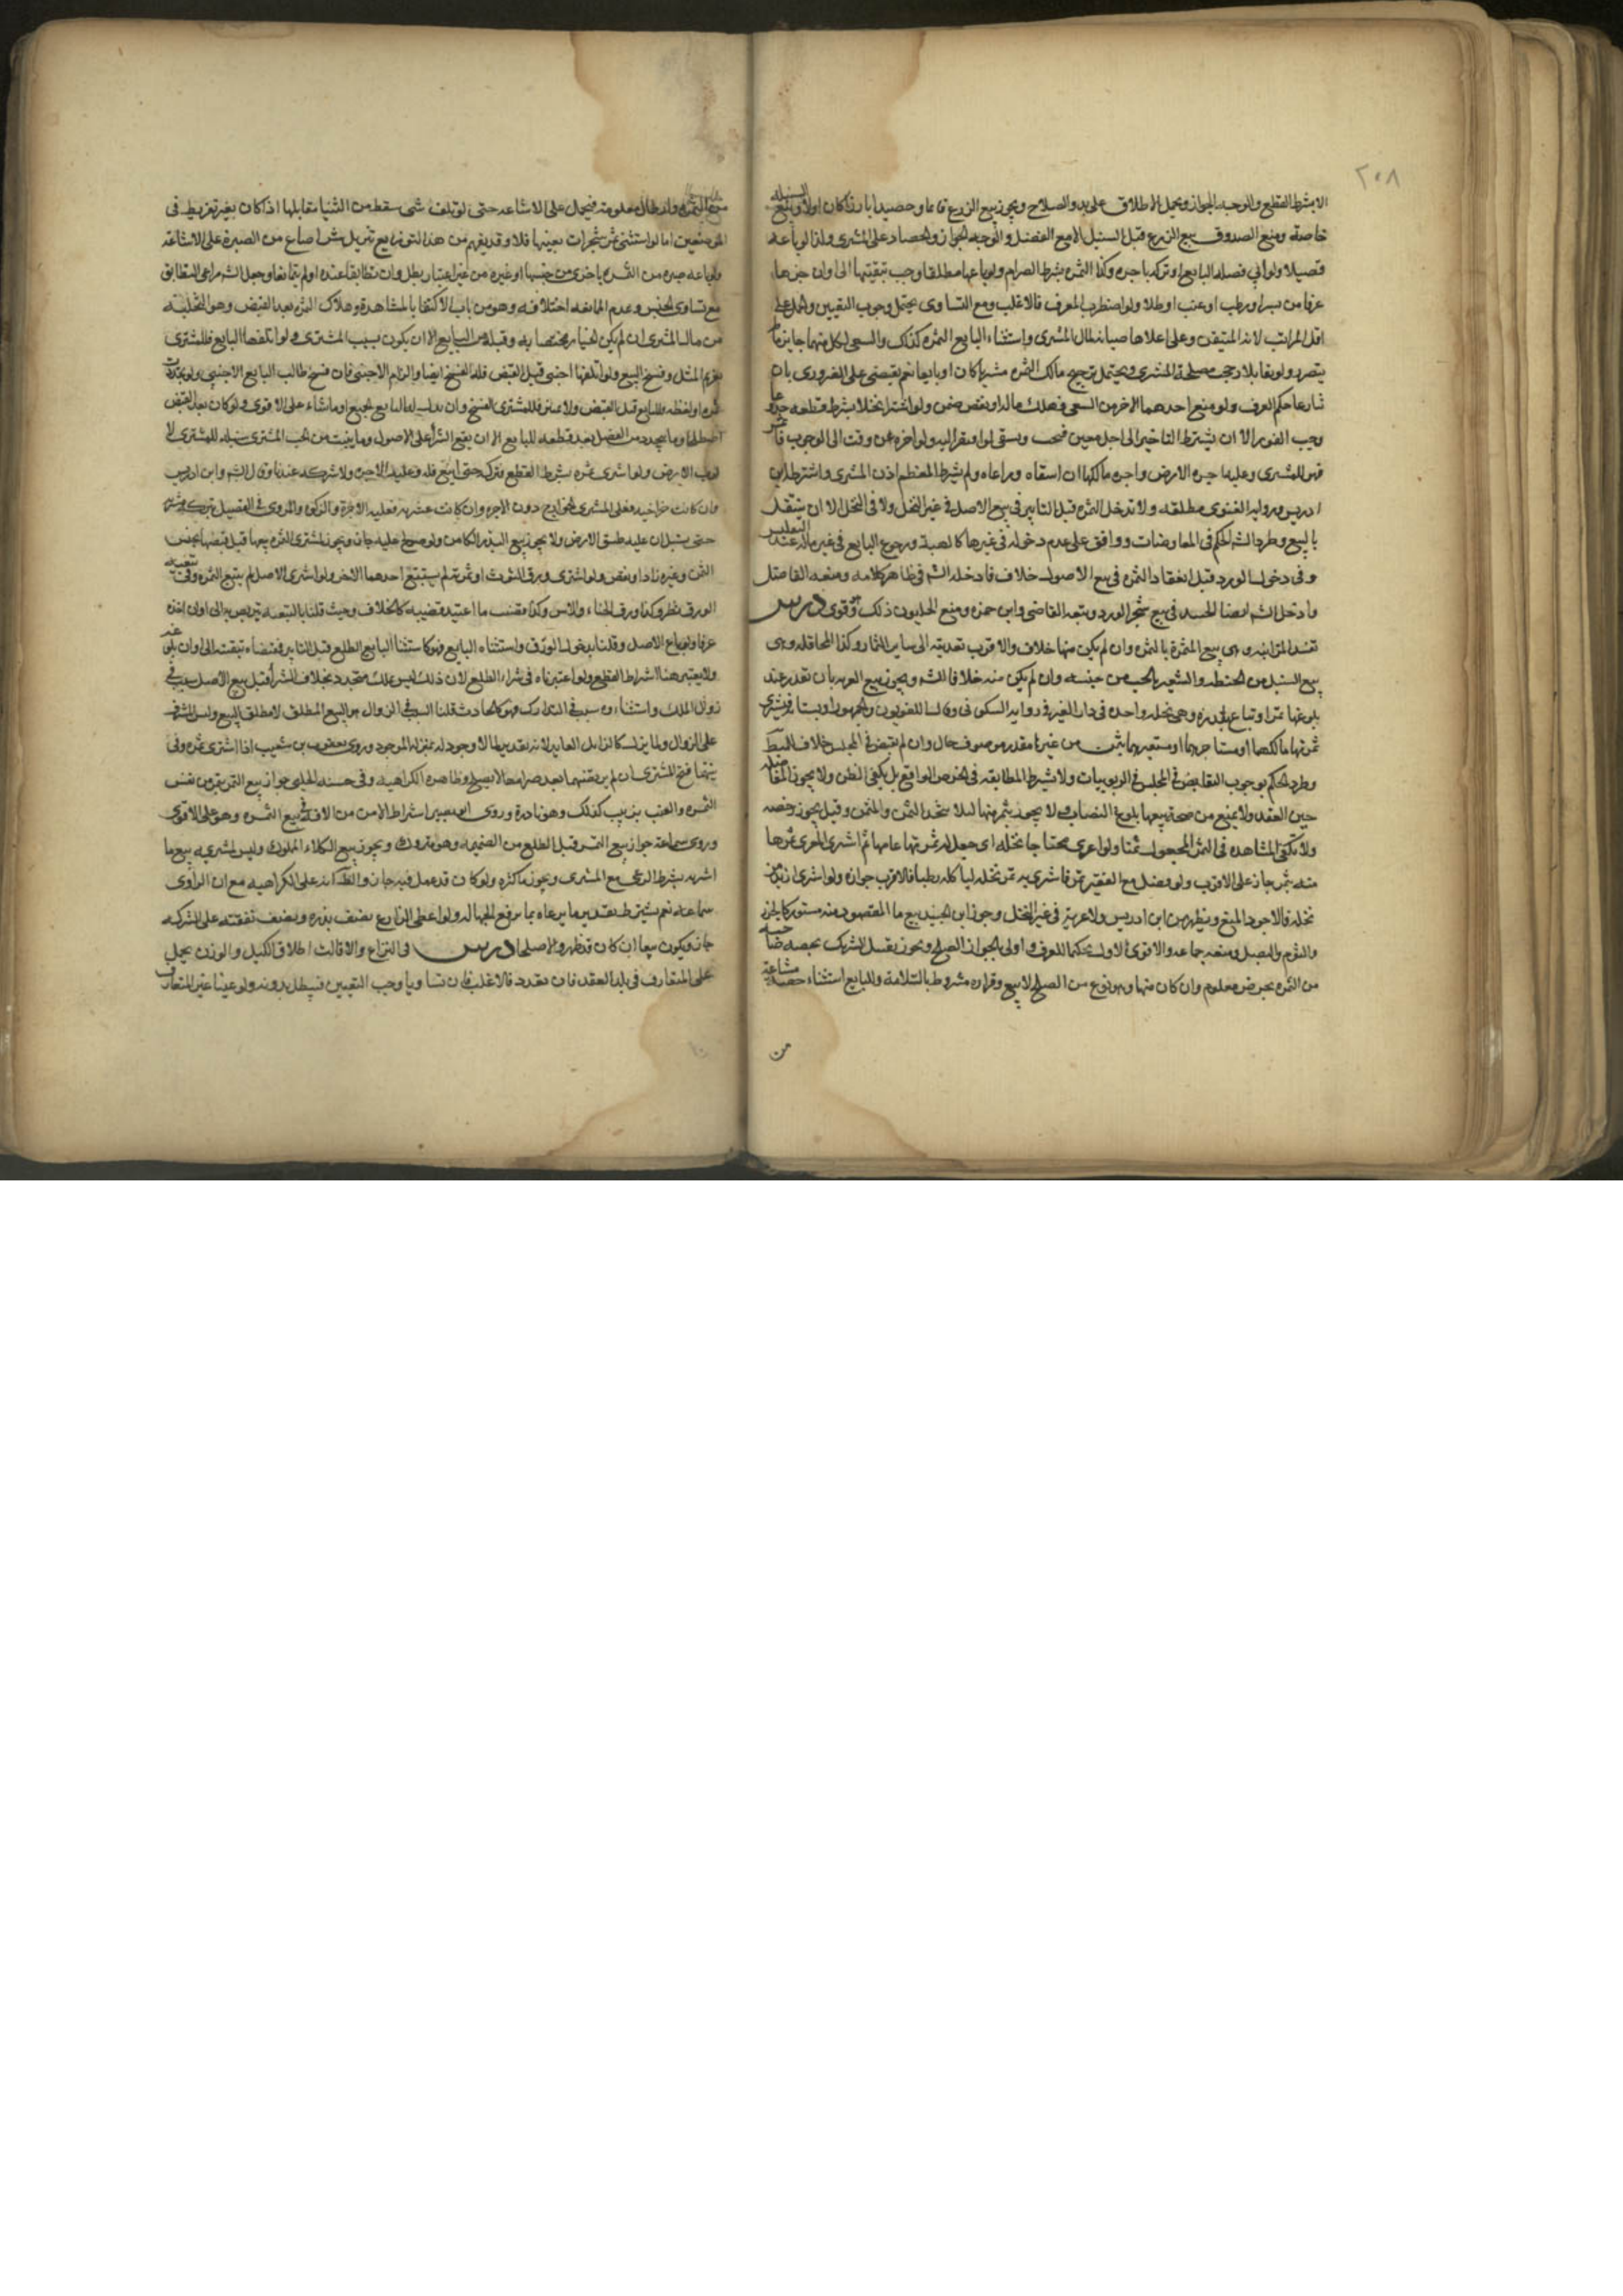 ٢٠٨
الا بشرط القطع والوجه الجواز ويحمل الاطلاق على بدو الصلاح ويجوز بيع الزرع قائما وحصيدا بارزا كان اولا وبيع السنبل
خاصة ومنع الصدوق بيع الزرع قبل السنبل الا مع الفصل والوجه الجواز والحصاد على المشترى ولذا لو باعه
قصيلا ولو ابى فصله البايع او تركه باجره وكذا الثمره بشرط الصرام ولو باعها مطلقا وجب تبقيتها الى اوان جزها
عرفا من بسر او رطب او عنب او طلا ولو اضطرب العرف فالاغلب ومع التساوى يحتمل وجوب التعيين والحمل على
اقل المراتب لانه المتيقن وعلى اعلاها صيانة لمال المشترى واستثناء البايع الثمره كذلك والسقى لكل منهما جايز ما لم
يتضرر ولو تقابلا رجحت مصلحة المشترى ويحتمل ترجيح مالك الثمره مشتريا كان او بايعا نعم يقتصر على الضرورى فان
تنازعا حكم العرف ولو منع احدهما الاخر من السقى فهلك ماله او نقص ضمن ولو اشترا نخلا بشرط قطعه جذوعا
وجب الفور الا ان يشترط التاخير الى اجل معين فيجب ويسقى لو افتقر اليه ولو اخره عن وقت الوجوب فاثمر
فهو للمشترى وعليه اجرة الارض واجره مالكها ان اسقاه وراعاه ولم يشترط المعظم اذن المشترى واشترطه ابن
ادريس ورواية الغنوى مطلقه ولا تدخل الثمره قبل التابير فى بيع الاصل فى غير النخل ولا فى النخل الا ان ينتقل
بالبيع وطرد الشيخ الحكم فى المعاوضات ووافق على عدم دخوله فى غيرها كالهبة ورجوع البايع فى عين ماله عند التفليس
وفى دخول الورد قبل انعقاد الثمره فى بيع الاصول خلاف فادخله الشيخ فى ظاهر كلامه ومنعه الفاضل
وادخل الشيخ ايضا الجنبد فى بيع شجر الورد وتبعه القاضى وابن حمزه ومنع الحليون ذلك وهو قوى درس
تفسد المزابنه وهى بيع الثمرة بالتمر وان لم يكن منها خلاف والاقرب تعديته الى ساير الثمار وكذا المحاقله وهى
بيع السنبل من الحنطه والشعير بالحب من جنسه وان لم يكن منه خلافا للشيخ ويجوز بيع العريه بان تقدر عند
بلوغها تمرا وتباع بقدره وهى نخله واحده فى دار الغير فى رواية السكونى وقال اللغويون والجمهور او بستانه فيشترى
ثمرتها مالكهما او مستاجرهما او مستعيرهما بثمن من غيرها مقدر موصوف حال وان لم يقبض فى المجلس خلافا للمبسوط
وطرد الحكم بوجوب التقابض فى المجلس فى الربويات ولا يشترط المطابقه فى الخرص الواقع بل يكفى الظن ولا يجوز التفاضل
حين العقد ولا يمنع من صحة بيعها بلوغ النصاب ولا يجوز بتمر منها لئلا يتحد الثمن والمثمن وقيل يجوز رخصه
ولا يكفى المشاهده فى التمر المجعول ثمنا ولو اعرى محتاجا نخله اى جعل له ثمرتها عامها ثم اشترى المعرى ثمرها
منه بتمر جاز على الاقرب ولو فضل مع الفقير تمر فاشترى به ثمر نخله لياكله رطبا فالاقرب جوازه ولو اشترى ازيد من
نخله فالاجود المنع ويظهر من ابن ادريس ولا عريه فى غير النخل وجوز ابن الجنيد بيع ما المقصود منه مستور كالجزر
والثوم والبصل ومنعه جماعه والاقوى الاول تحكيما للعرف واولى بالجواز الصلح ويجوز تقبيل الشريك بحصة صاحبه
من الثمره بعوض معلوم وان كان منها وهو نوع من الصلح لا بيع وقراره مشروط بالسلامة وللبايع استثناء حصة مشاعة
من
من الثمره وارطال معلومة فيحمل على الاشاعه حتى لو تلف شى سقط من الثنيا مقابلها اذا كان بغير تفريط فى
الموضعين اما لو استثنى ثمن شجرات بعينها فلا وقد يفهم من هذا التوزيع تنزيل شراء صاع من الصبرة على الاشاعة
ولو باعه صبره من الثمره باخرى من جنسها او غيره من غير اعتبار بطل وان تطابقا عنده او لم يتمانعا وجعل الشيخ مراعى المتطابق
مع تساوى الجنس وعدم الممانعه اختلافه وهو من باب الاكتفا بالمشاهدة وهلاك الثمره بعد القبض وهو التخليه
من مال المشترى ان لم يكن الخيار مختصا به وقبله من البايع الا ان يكون بسبب المشترى ولو اتلفها البايع فللمشترى
تغريم المثل وفسخ البيع ولو اتلفها اجنبى قبل القبض فله الفسخ ايضا والزام الاجنبى فان فسخ طالب البايع الاجنبى ولو تجددت
ثمره او لقطه للبايع قبل القبض ولا تميز فللمشترى الفسخ وان بذل له البايع الجميع او ما شاء على الاقوى ولو كان بعد القبض
اصطلحا وما يتجدد من القصيل بعد قطعه للبايع الا ان يقع الشراء على الاصول وما ينبت من الحب المشترى سنبله للمشترى لا
لصاحب الارض ولو اشترى ثمره بشرط القطع فتركه حتى اينع فله وعليه الاجره ولا شركه عندنا وقال الشيخ وابن ادريس
وان كانت خراجيه فعلى المشترى الخراج دون الاجره وان كانت عشريه فعليه الاجرة والزكوة والمروى فى القصيل
حتى يسنبل ان عليه طسق الارض ولا يجوز بيع البذر الكامن ولو صولح عليه جاز ويجوز لمشترى الثمره بيعها قبل قبضها بجنس
الثمن وغيره زاد او نقص ولو اشترى ورق التوث او ثمرته لم يستتبع احدهما الاخر ولو اشترى الاصل لم يتبع الثمره وفى تبعيه
الورق نظر وكذا ورق الحناء والاس وكذا قضب ما اعتيد قضيبه كالخلاف وحيث قلنا بالتبعيه تربص به الى اوان اخذه
عرفا ولو باع الاصل وقلنا بدخول الورق واستثناه البايع فهو كاستثناء البايع الطلع قبل التابير فمقتضاه تبقيته الى اوان بلوغه
ولا يعتبر هنا اشتراط القطع ولو اعتبرناه فى شراء الطلع لان ذلك ليس بملك متجدد بخلاف الشراء
زوال الملك واستثناءه سبب فى التدارك فهو كالحادث قلنا السبب فى الزوال هو البيع المطلق لا مطلق البيع وليس المشرف
على الزوال ولما يزل كالزائل العائد لانه تقدير بطل لا وجود له بمنزله الموجود وروى يعقوب بن شعيب اذا اشترى ثمره وفى
نيتهما فسخ المشترى ان لم يربح فيهما بعد صرامها لا يصلح وظاهره الكراهيه وفى حسنه الحلبى جواز بيع التمر بتمر من نفس
الثمره والعنب بزبيب كذلك وهو نادرة وروى ابو بصير اشتراط الامن من الافه فى بيع الثمره وهو على الاقوى
وروى سماعة جواز بيع الثمر قبل الطلع من الضميمه وهو متروك ويجوز بيع الكلاء المملوك وليس لمشتريه بيع ما
اشتراه بشرط الرعى مع المشترى ويجوز ما كثره ولو كان قد عمل فيه جاز والظاهر انه على الكراهيه مع ان الراوى
سماعه نعم يشترط تقدير ما يرعاه بما يرفع الجهاله ولو اعطى الزارع نصف بذره ونصف نفقته على الشركه
جاز ويكون بيعا ان كان قد ظهر والا صلحا درس فى النزاع والاقالة اطلاق الكيل والوزن يحمل
على المتعارف فى بلد العقد فان تعدد فالاغلب فان تساويا وجب التعيين فيبطل بدونه ولو عينا غير المتعارف